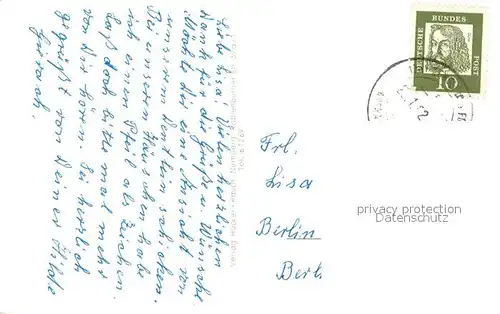 Liebe Lisa! Vielen herzlichen
Dank für die Grüße u. Wünsche.
Möchte dir eine Ansicht von
unserem Dentlein schicken.
Bei unserem Häuschen habe
ich einen Pfeil als Zeichen.
Laß doch bitte mal mehr
von dir hören. Sei herzlich
gegrüßt von deiner Hilde
Verlag
Nürnberg
Tel.
DEUTSCHE
BUNDES
POST
10
Frl.
Lisa
Berlin
Berl
privacy protection
Datenschutz